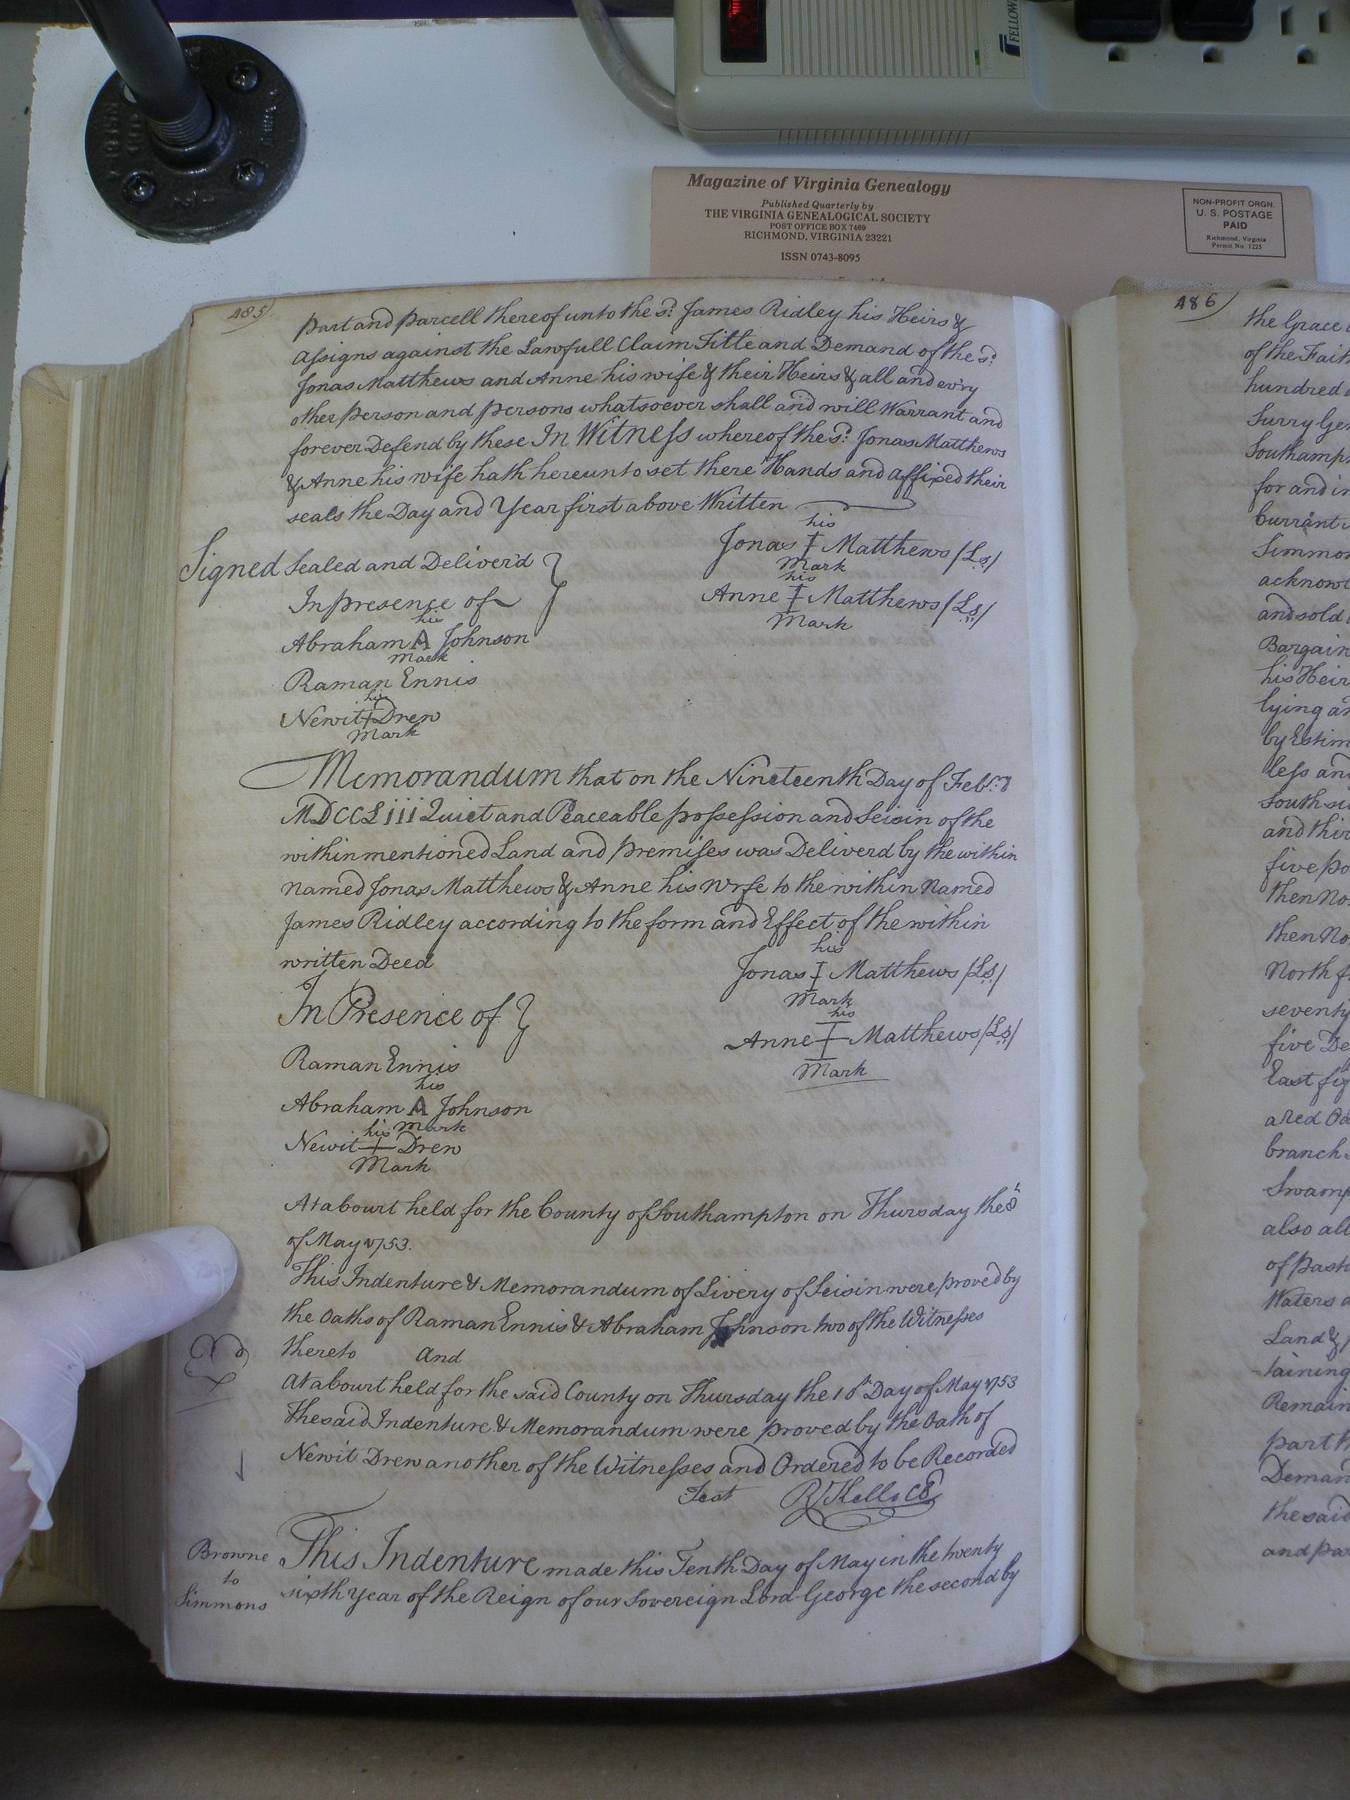 FELLOW
Magazine of Virginia Genealogy
Published Quarterly by
THE VIRGINIA GENEALOGICAL SOCIETY
POST OFFICE BOX 7469
RICHMOND, VIRGINIA 23221
ISSN 0743-8095
NON-PROFIT ORGN.
U. S. POSTAGE
PAID
Richmond, Virginia
Permit No. 1225
485
part and parcell thereof unto the sd. James Ridley his Heirs &
Assigns against the Lawfull Claim Title and Demand of the sd.
Jonas Matthews and Anne his wife & their Heirs & all and ev'ry
other person and persons whatsoever shall and will Warrant and
forever Defend by these In Witness whereof the sd. Jonas Matthews
& Anne his wife hath hereunto set there Hands and affixed their
seals the Day and Year first above Written
his
Jonas I Matthews (Ls)
Mark
his
Anne I Matthews (Ls)
Mark
Signed Sealed and Deliver'd
In presence of
his
Abraham A Johnson
mark
Raman Ennis
his
Newit + Drew
Mark
Memorandum that on the Nineteenth Day of
MDCCLiii Quiet and Peaceable possession and Seisin of the
within mentioned Land and premises was Deliverd by the within
named Jonas Matthews & Anne his wife to the within Named
James Ridley according to the form and Effect of the within
written Deed
his
Jonas I Matthews (Ls)
Mark
his
Anne I Matthews (Ls)
Mark
In Presence of
Raman Ennis
his
Abraham A Johnson
mark
his
Newit + Drew
Mark
At a Court held for the County of Southampton on Thursday the
of May 1753.
This Indenture & Memorandum of Livery of Seisin were proved by
the Oaths of Raman Ennis & Abraham Johnson two of the Witnesses
thereto And
At a Court held for the said County on Thursday the 10th Day of May 1753
The said Indenture & Memorandum were proved by the Oath of
Newit Drew another of the Witnesses and Ordered to be Recorded
Test R Kello CC
Browne
to
Simmons
This Indenture made this Tenth Day of May in the twenty
sixth Year of the Reign of our Sovereign Lord George the second by
486
the Grace
of the Fait
hundred
Surry
Southamp
for and in
Currant
Simmon
acknow
and sold
Bargain
his Heir
lying an
by Estim
less and
South si
and thir
five po
then No
then No
North f
seventy
five De
East fif
a red Oa
branch
Swamp
also all
of past
Waters a
Land &
-taining
Remain
part th
Deman
the said
and pa